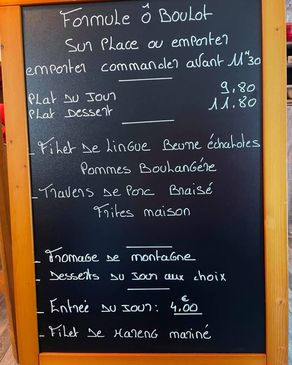 Formule ô Boulot
Sur Place ou emporter
emporter commander avant 11H30
Plat du Jour 9,80
Plat Dessert 11.80
- Filet de Lingue Beurre échalotes
Pommes Boulangère
- Travers de Porc Braisé
Frites maison
- Fromage de montagne
- Desserts du Jour aux choix
- Entrée du Jour: 4,00 €
- Filet de Hareng mariné